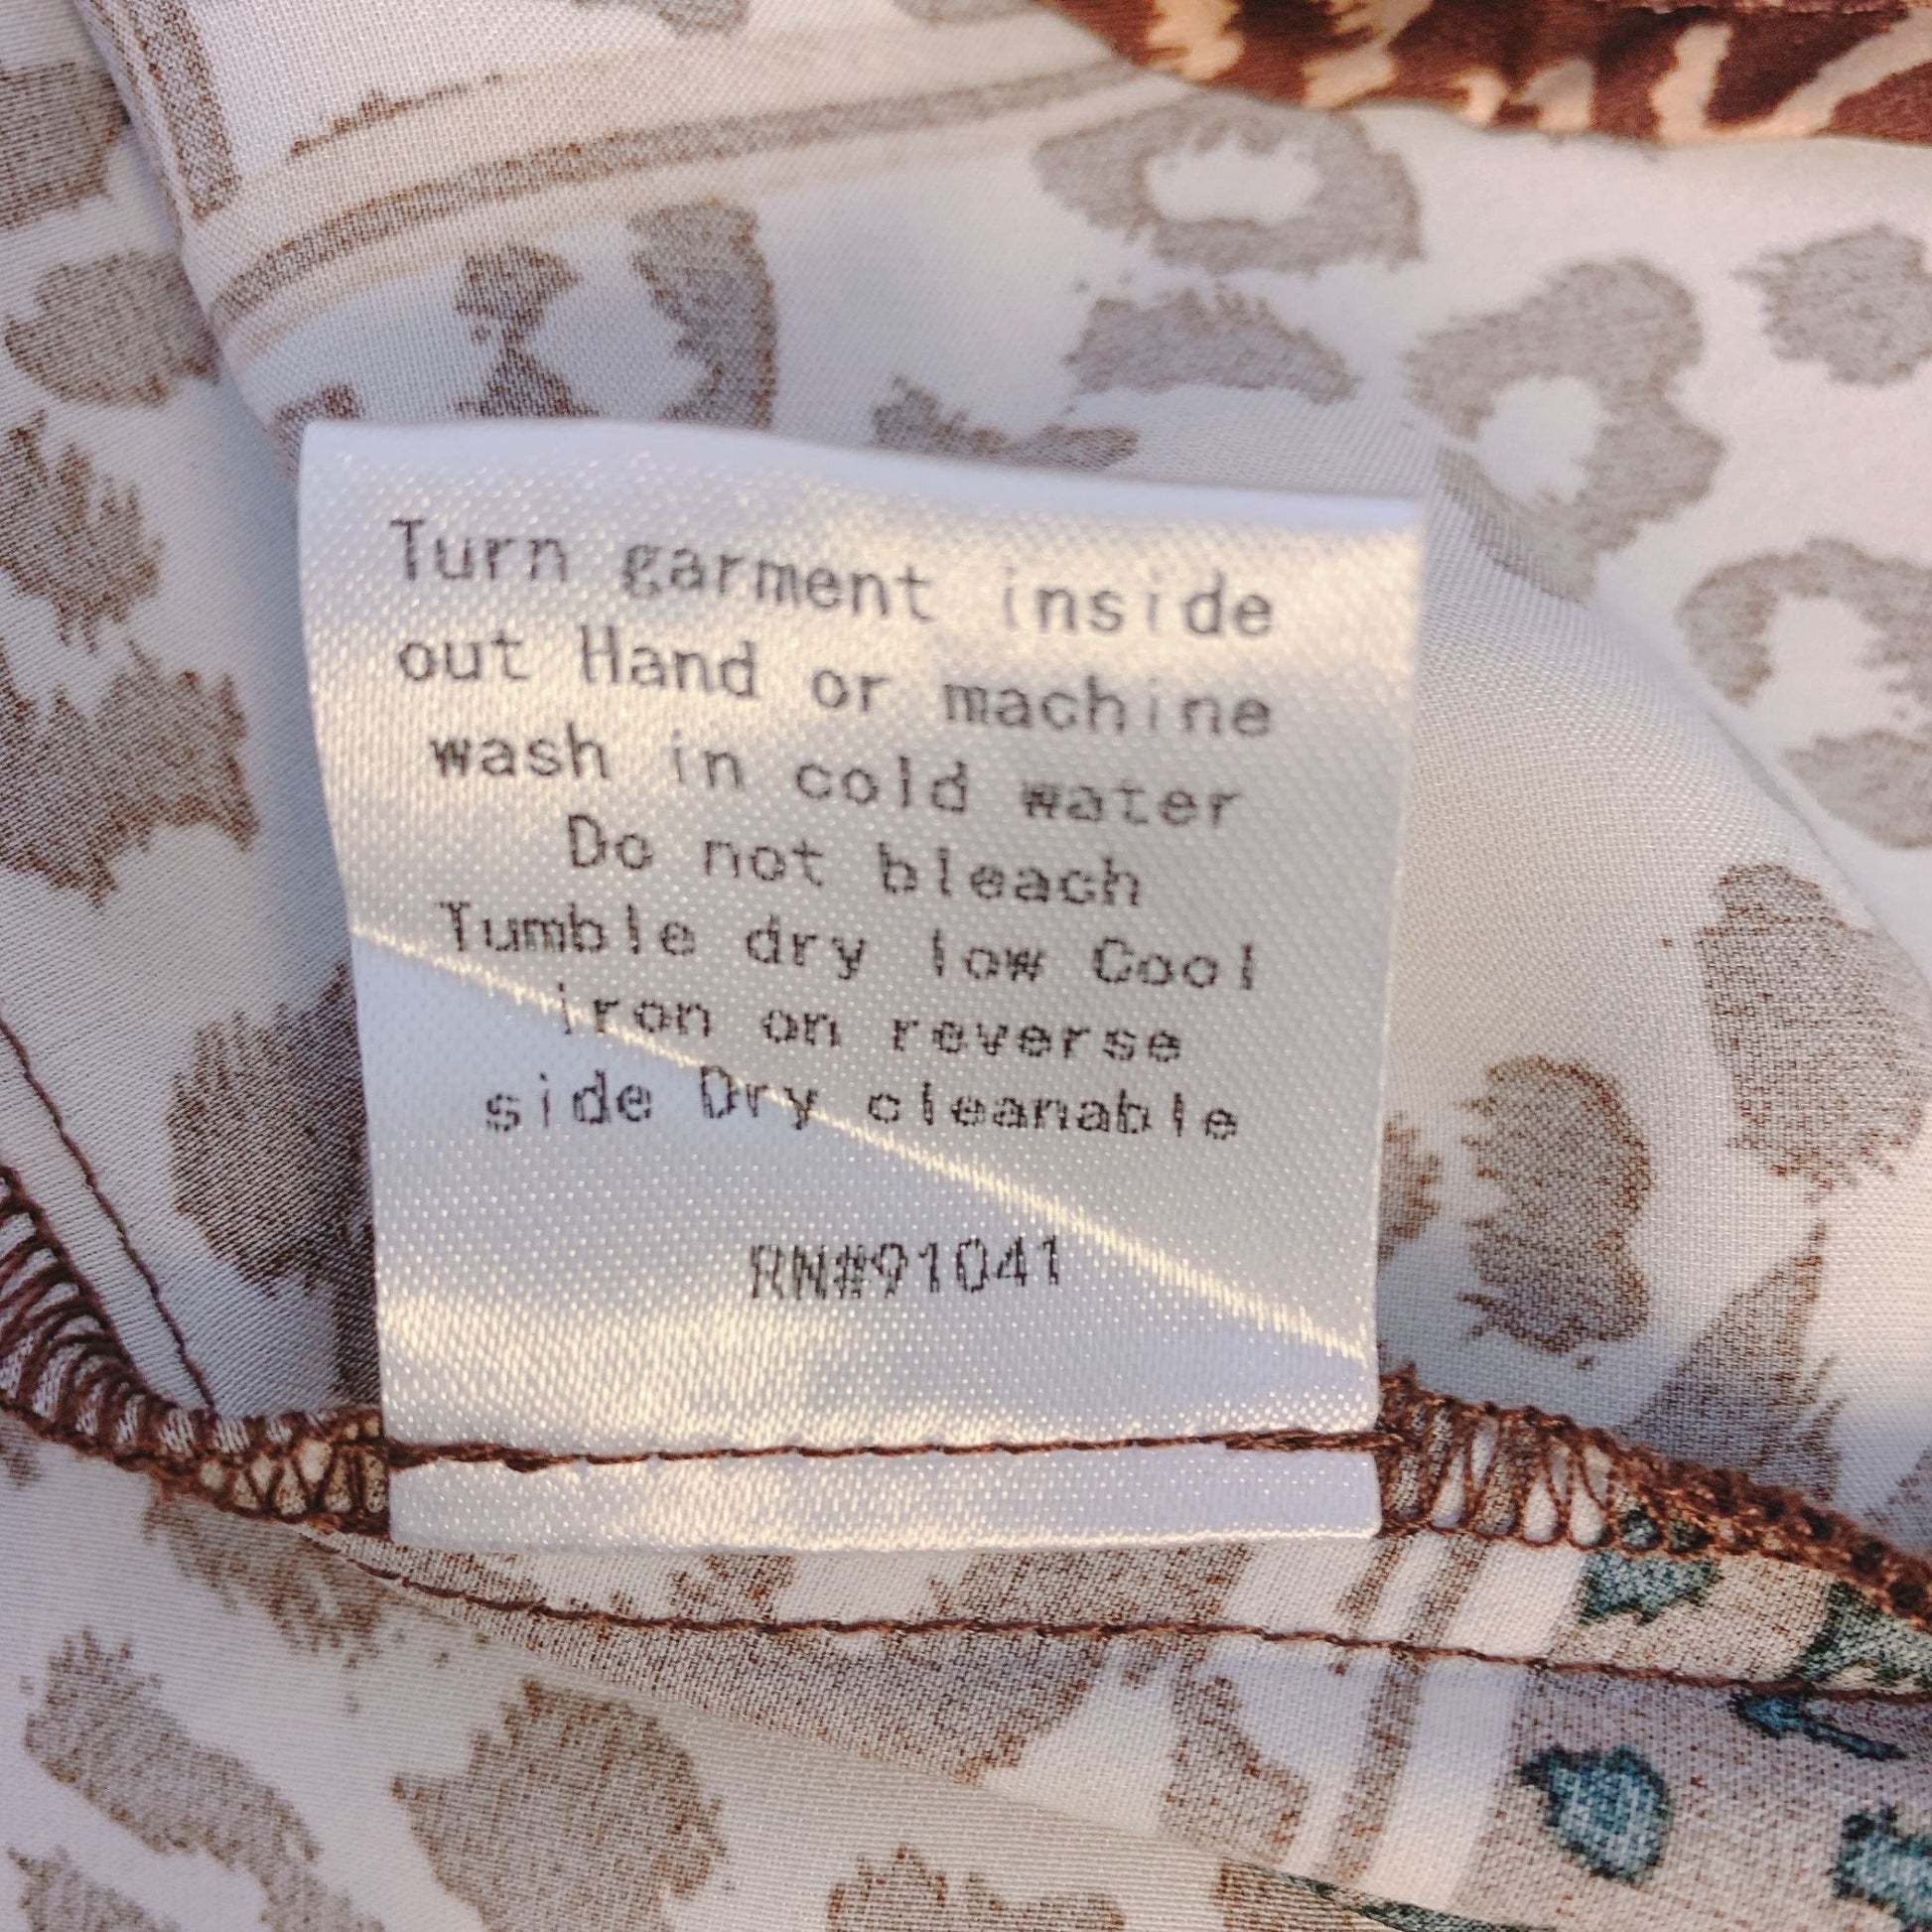 Turn garment inside
out Hand or machine
wash in cold water
Do not bleach
Tumble dry low Cool
iron on reverse
side Dry cleanable
RN#91041